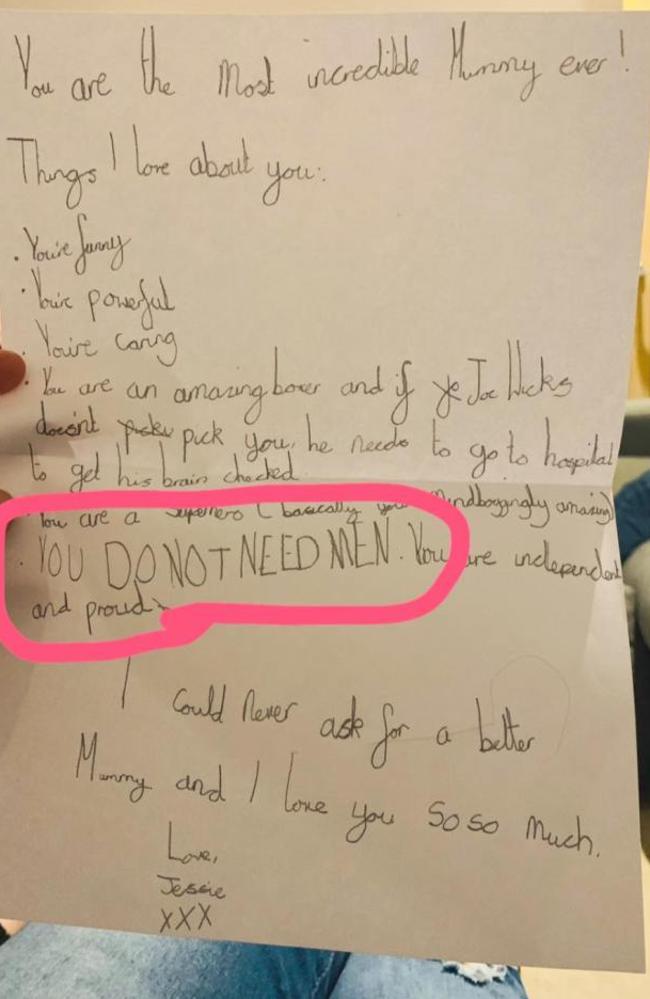 You are the most incredible Mummy ever!
Things I love about you:
· You're funny
· You're powerful
· You're caring
· You are an amazing boxer and if Joe Wicks
doesn't pick you, he needs to go to hospital
to get his brain checked
· You are a superhero (basically you mindboggingly amazing)
· YOU DO NOT NEED MEN. You are independent
and proud.
I could never ask for a better
Mummy and I love you so so much.
Love,
Jessie
xxx